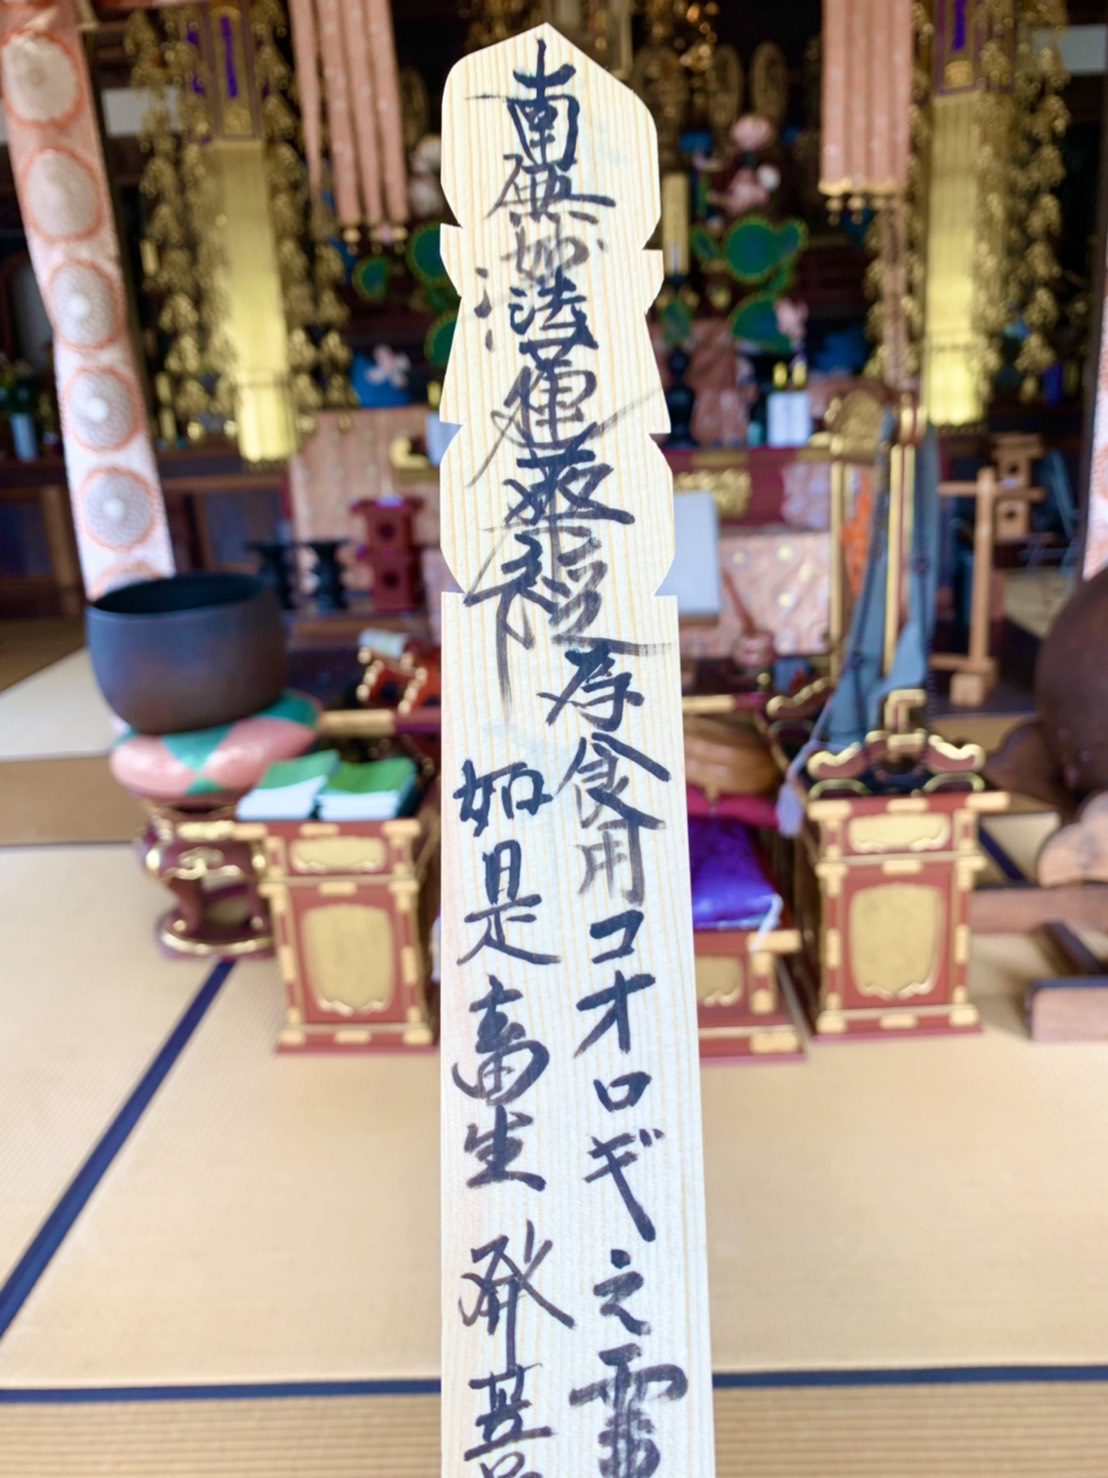 南無妙法蓮華経
為食用コオロギ之霊
如是畜生 発菩